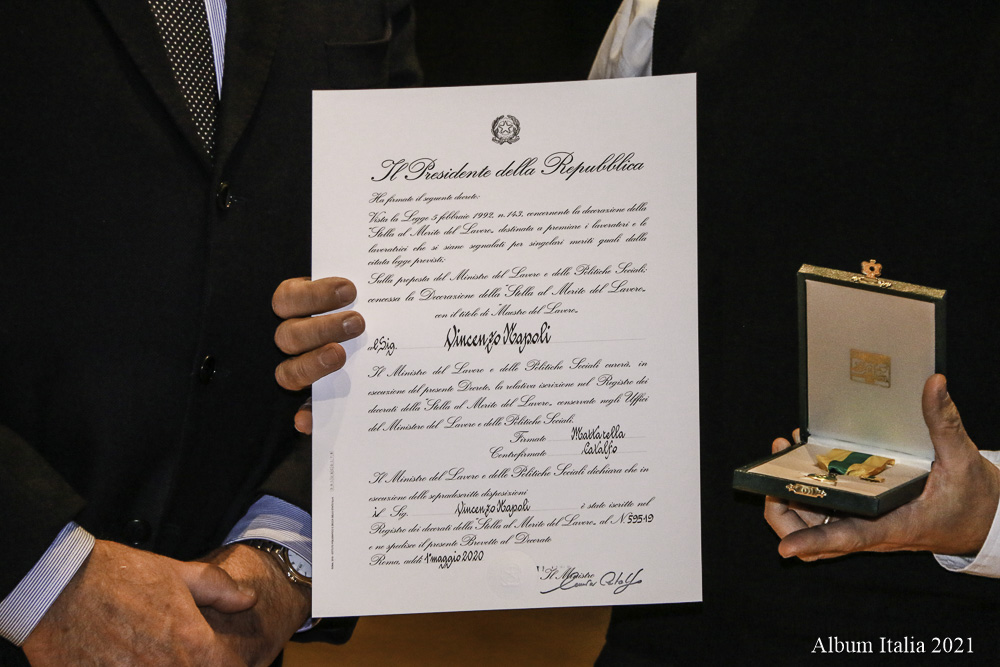 Il Presidente della Repubblica
Ha firmato il seguente decreto:
Vista la Legge 5 febbraio 1992, n. 143, concernente la decorazione della
"Stella al Merito del Lavoro", destinata a premiare i lavoratori e le
lavoratrici che si siano segnalati per singolari meriti quali dalla
citata legge previsti;
Sulla proposta del Ministro del Lavoro e delle Politiche Sociali;
concessa la Decorazione della "Stella al Merito del Lavoro"
con il titolo di "Maestro del Lavoro"
al Sig. Vincenzo Napoli
Il Ministro del Lavoro e delle Politiche Sociali curerà, in
esecuzione del presente Decreto, la relativa iscrizione nel Registro dei
decorati della "Stella al Merito del Lavoro", conservato negli Uffici
del Ministero del Lavoro e delle Politiche Sociali.
Firmato Mattarella
Controfirmato Catalfo
Il Ministro del Lavoro e delle Politiche Sociali dichiara che in
esecuzione delle sopradescritte disposizioni
il Sig. Vincenzo Napoli è stato iscritto nel
Registro dei decorati della "Stella al Merito del Lavoro", al N. 59519
e ne spedisce il presente Brevetto al Decorato
Roma, addì 1° maggio 2020
Il Ministro
Album Italia 2021